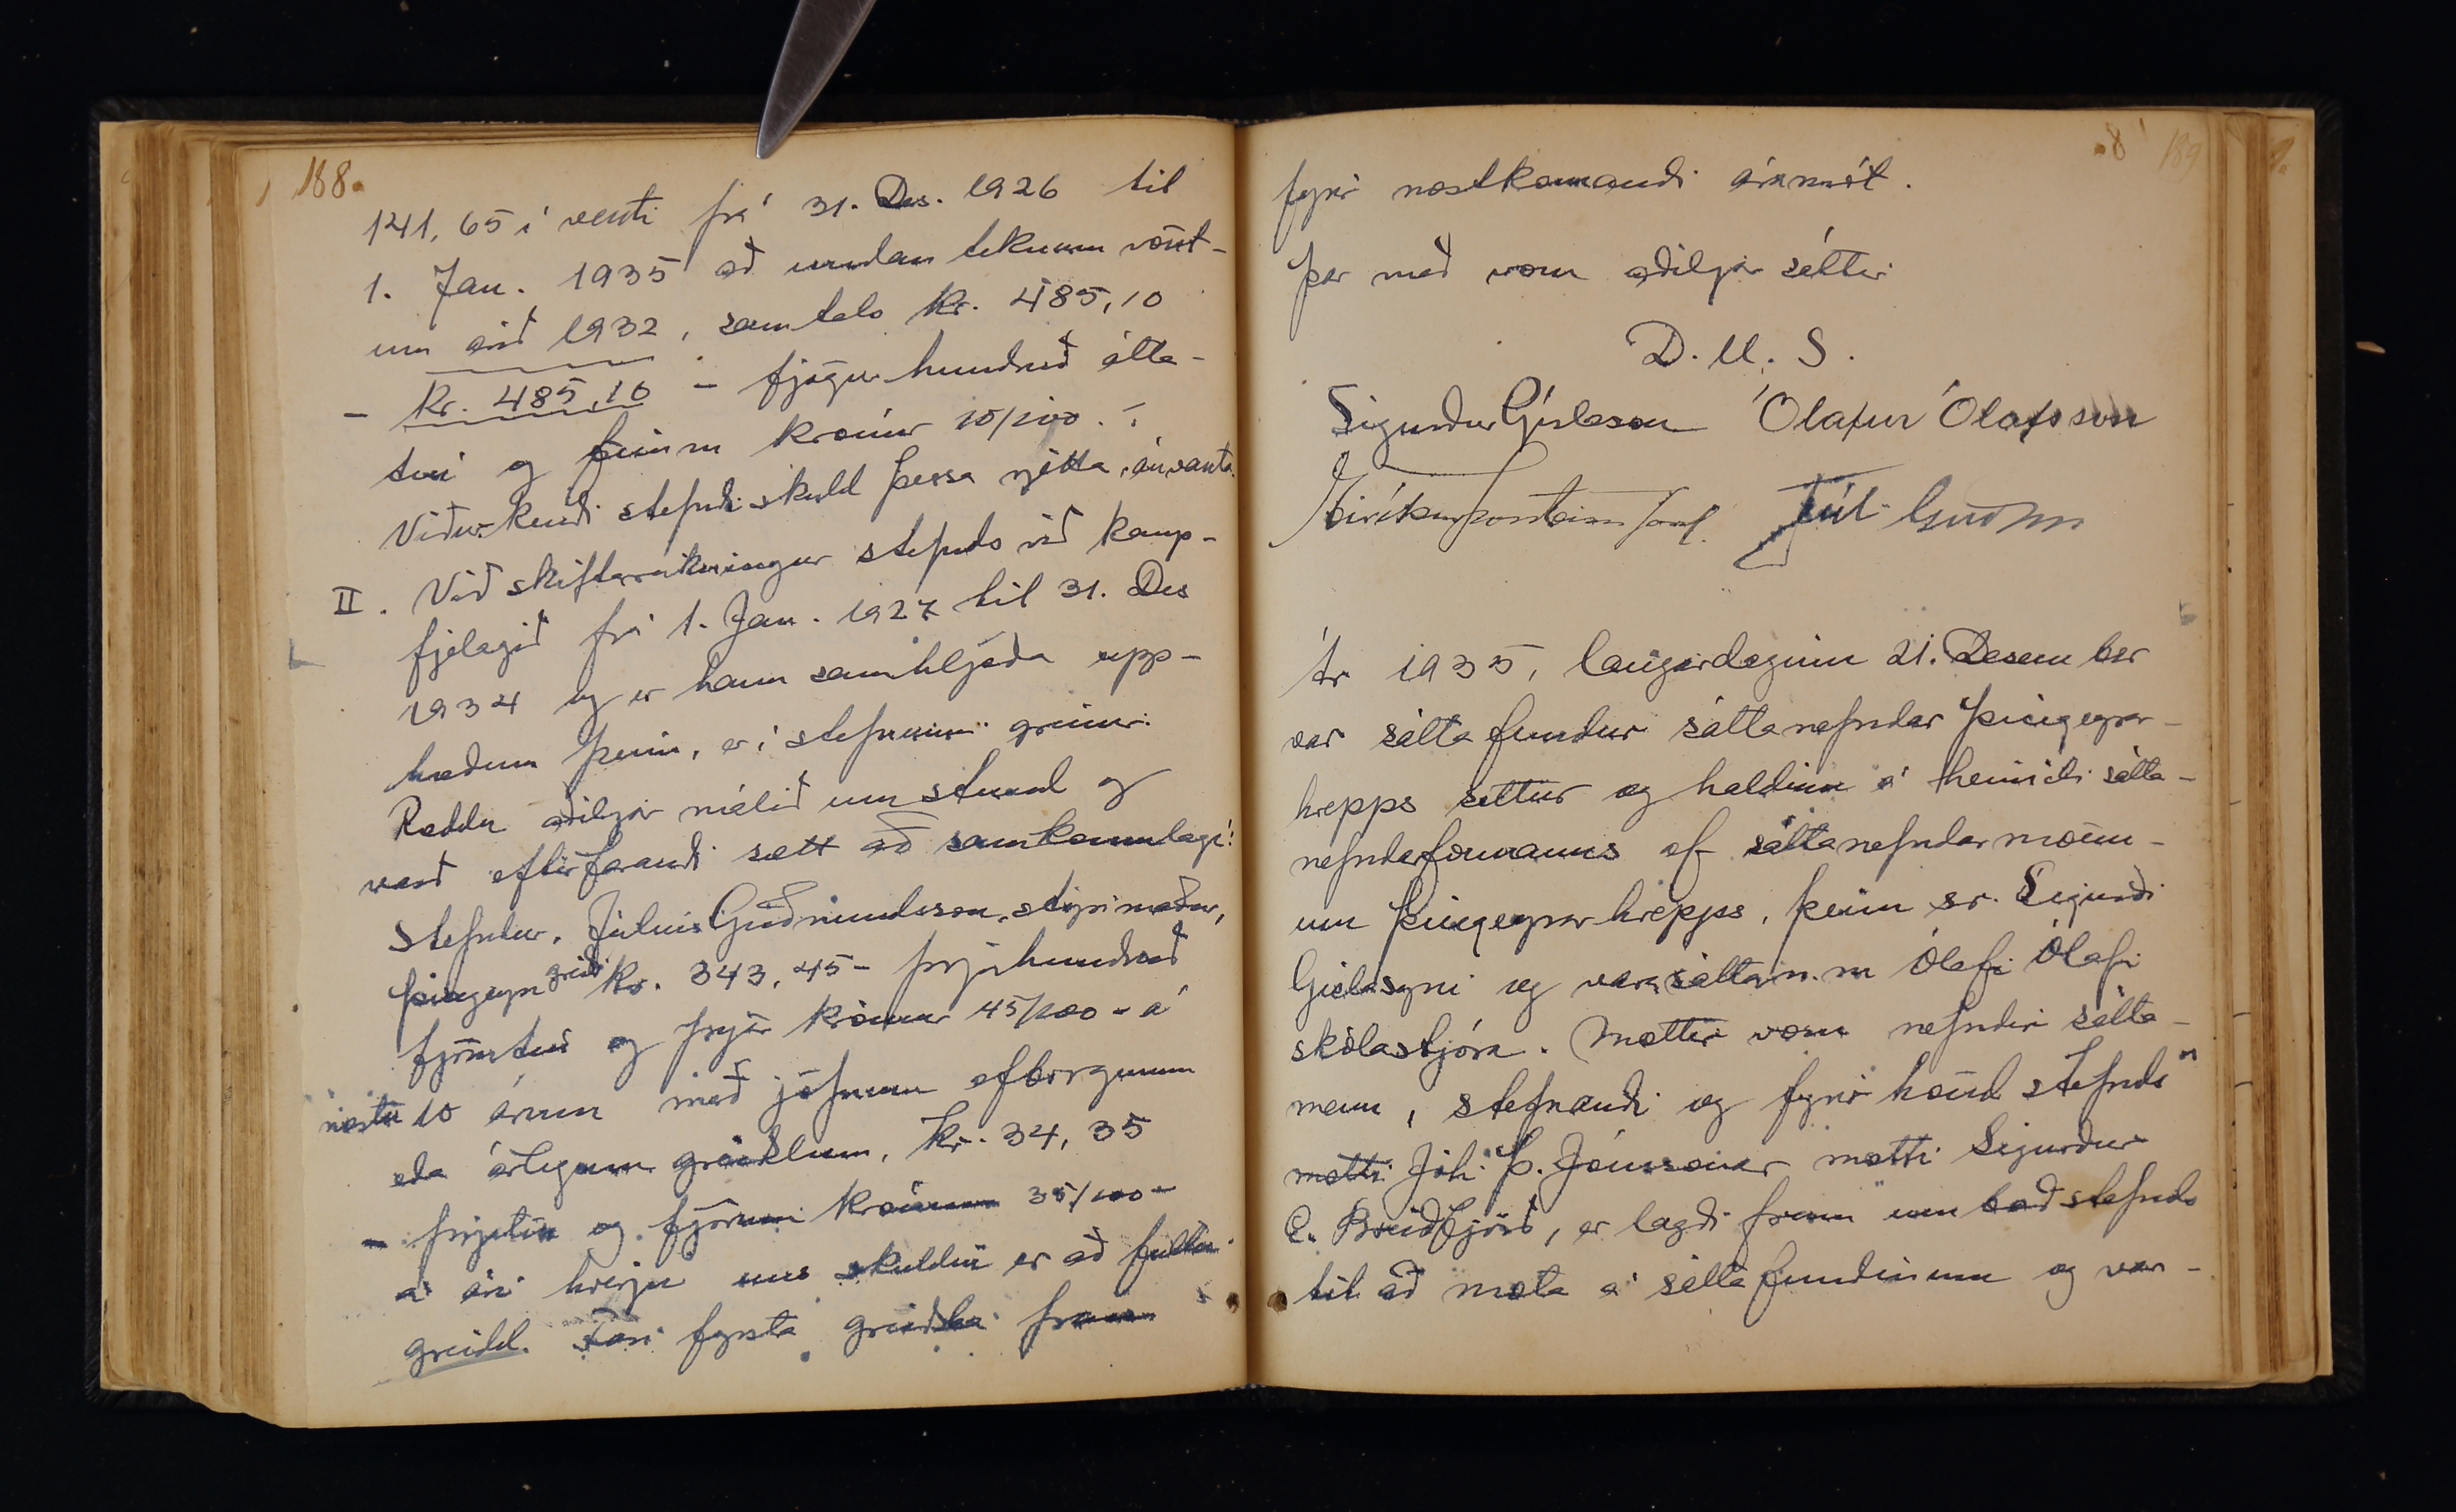 188.
141,65 í vexti frá 31. Des. 1926 til
1. Jan. 1935 að undan teknum vöxt-
um árið 1932, samtals kr. 485,10
- kr. 485,10 - fjögur hundruð átta-
tíu og fimm krónur 10/100. -
Viðurkendi stefndi skuld þessa rjetta,
II. Við skiftareikningur stefnds við kaup-
fjelagið frá 1. Jan. 1927 til 31. Des
1934 og er hann samhljóða upp-
hæðum þeim, er í stefnunni greinir.
Ræddu aðiljar málið um stund og
varð eftirfarandi sætt að samkomulagi:
Stefndur, Júlíus Guðmundsson, stýrimaður,
Þingeyri greiði kr. 343,45 - þrjú hundruð
fjörutíu og þrjár krónur 45/100 - á
næstu 10 árum með jöfnum afborgunum
eða árlegum greiðslum, kr. 34,35
- þrjátíu og fjórum krónum 35/100 -
á ári hverju uns skuldin er að fullu
greidd. Fari fyrsta greiðsla fram
189
fyrir næstkomandi áramót.
Þar með voru aðiljar sáttir
D. U. S.
Sigurður Gíslason Ólafur Ólafsson
Eiríkur Þorsteinsson Júl. Guðm
Ár 1935, laugardaginn 21. Desember
var sáttafundur sáttanefndar Þingeyrar-
hrepps settur og haldinn á heimili sátta-
nefndarformanns af sáttanefndarmönn-
um Þingeyrarhrepps, þeim sr. Sigurði
Gíslasyni og varasáttan.m Ólafi Ólafi
skólastjóra. Mættir voru nefndir sátta-
menn, stefnandi og fyrir hönd stefnds
mætti Jóh. Þ. Jónssonar mætti Sigurður
E. Breiðfjörð, er lagði fram umboð stefnds
til að mæta á sáttafundinum og var-